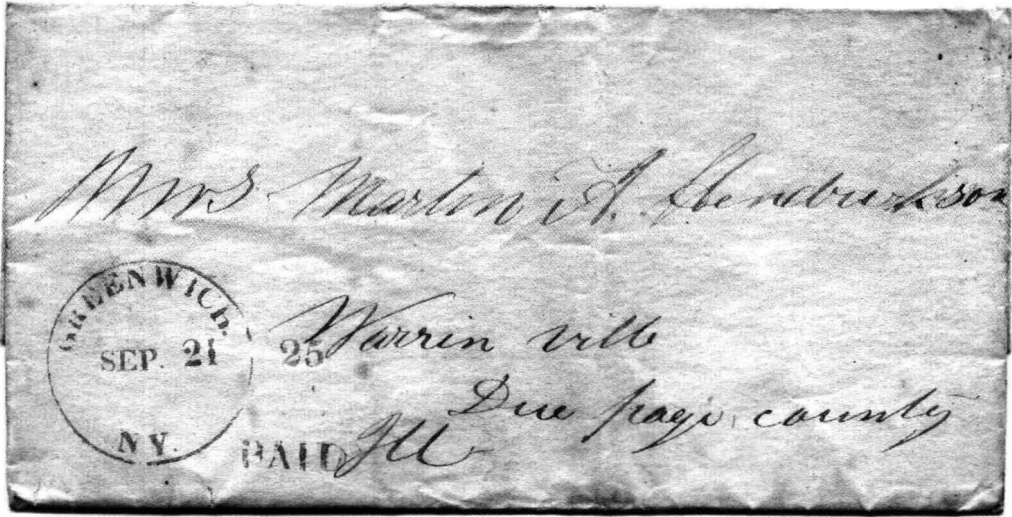 Mrs Martin A. Hendrickson
GREENWICH.
SEP. 21
N.Y.
25
Warrin ville
Due page county
PAID
Ill